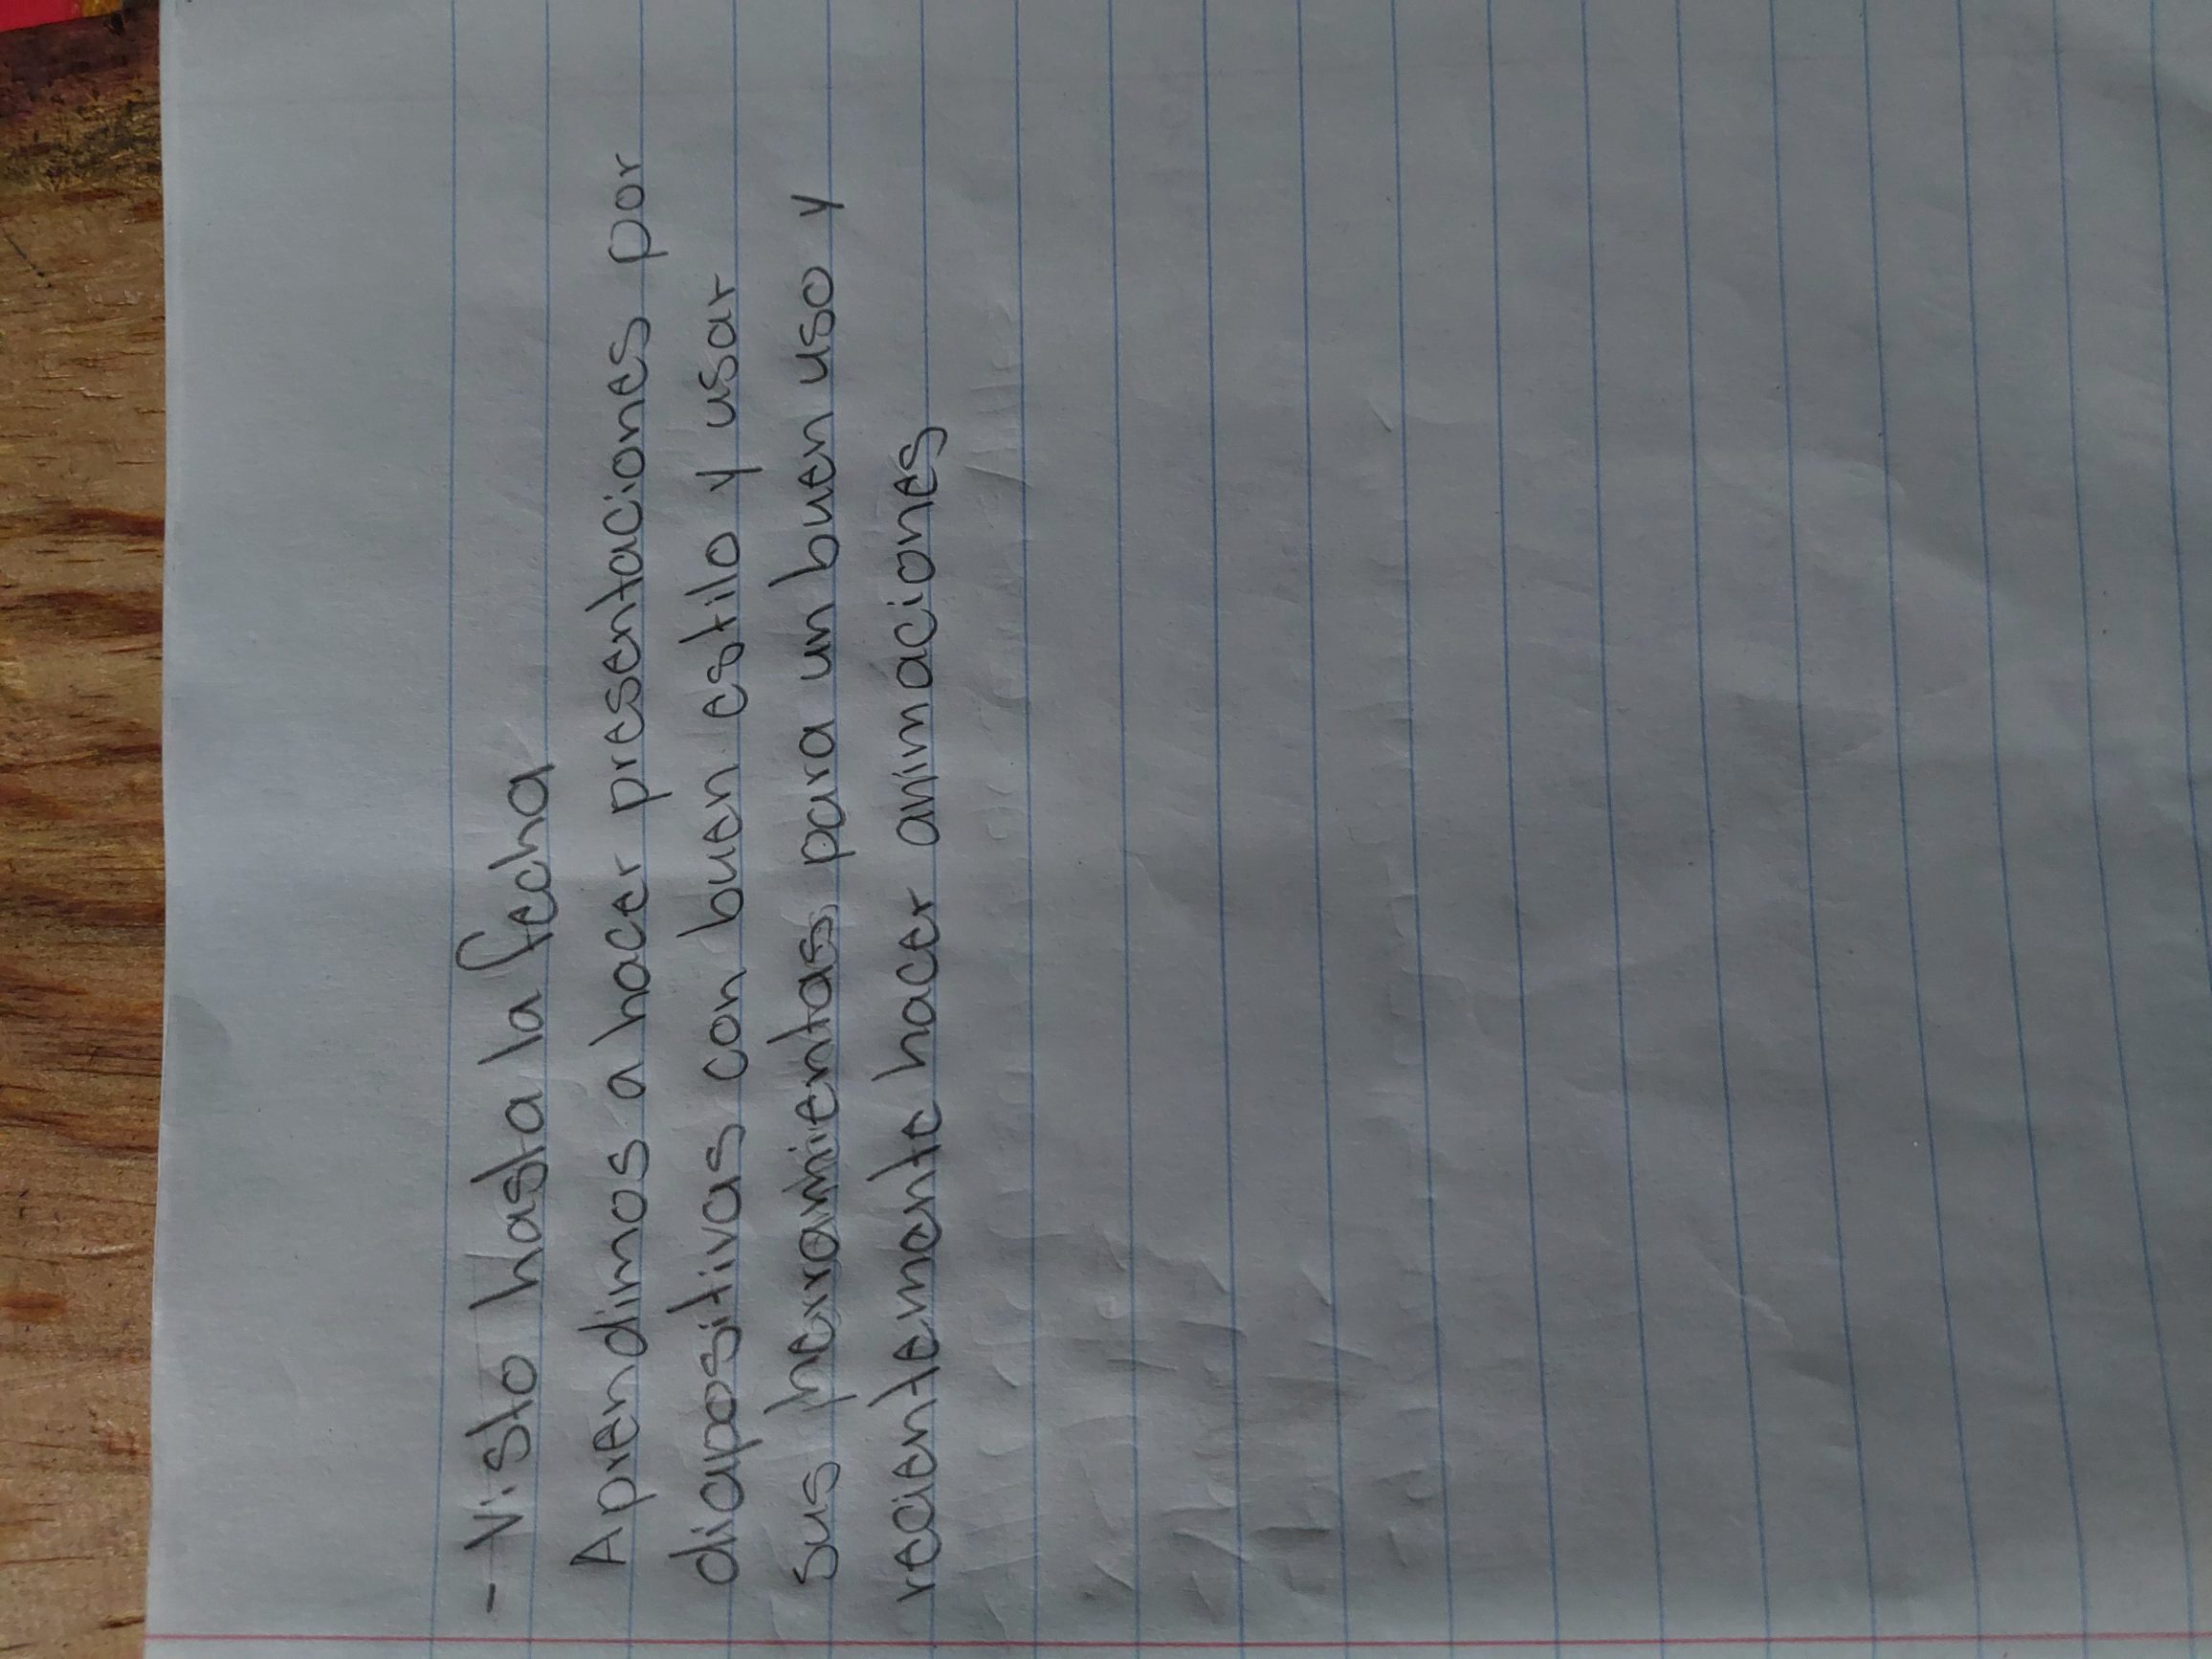 - Visto hasta la fecha
Aprendimos a hacer presentaciones por
diapositivas con buen estilo y usar
sus herramientas, para un buen uso y
recientemente hacer animaciones